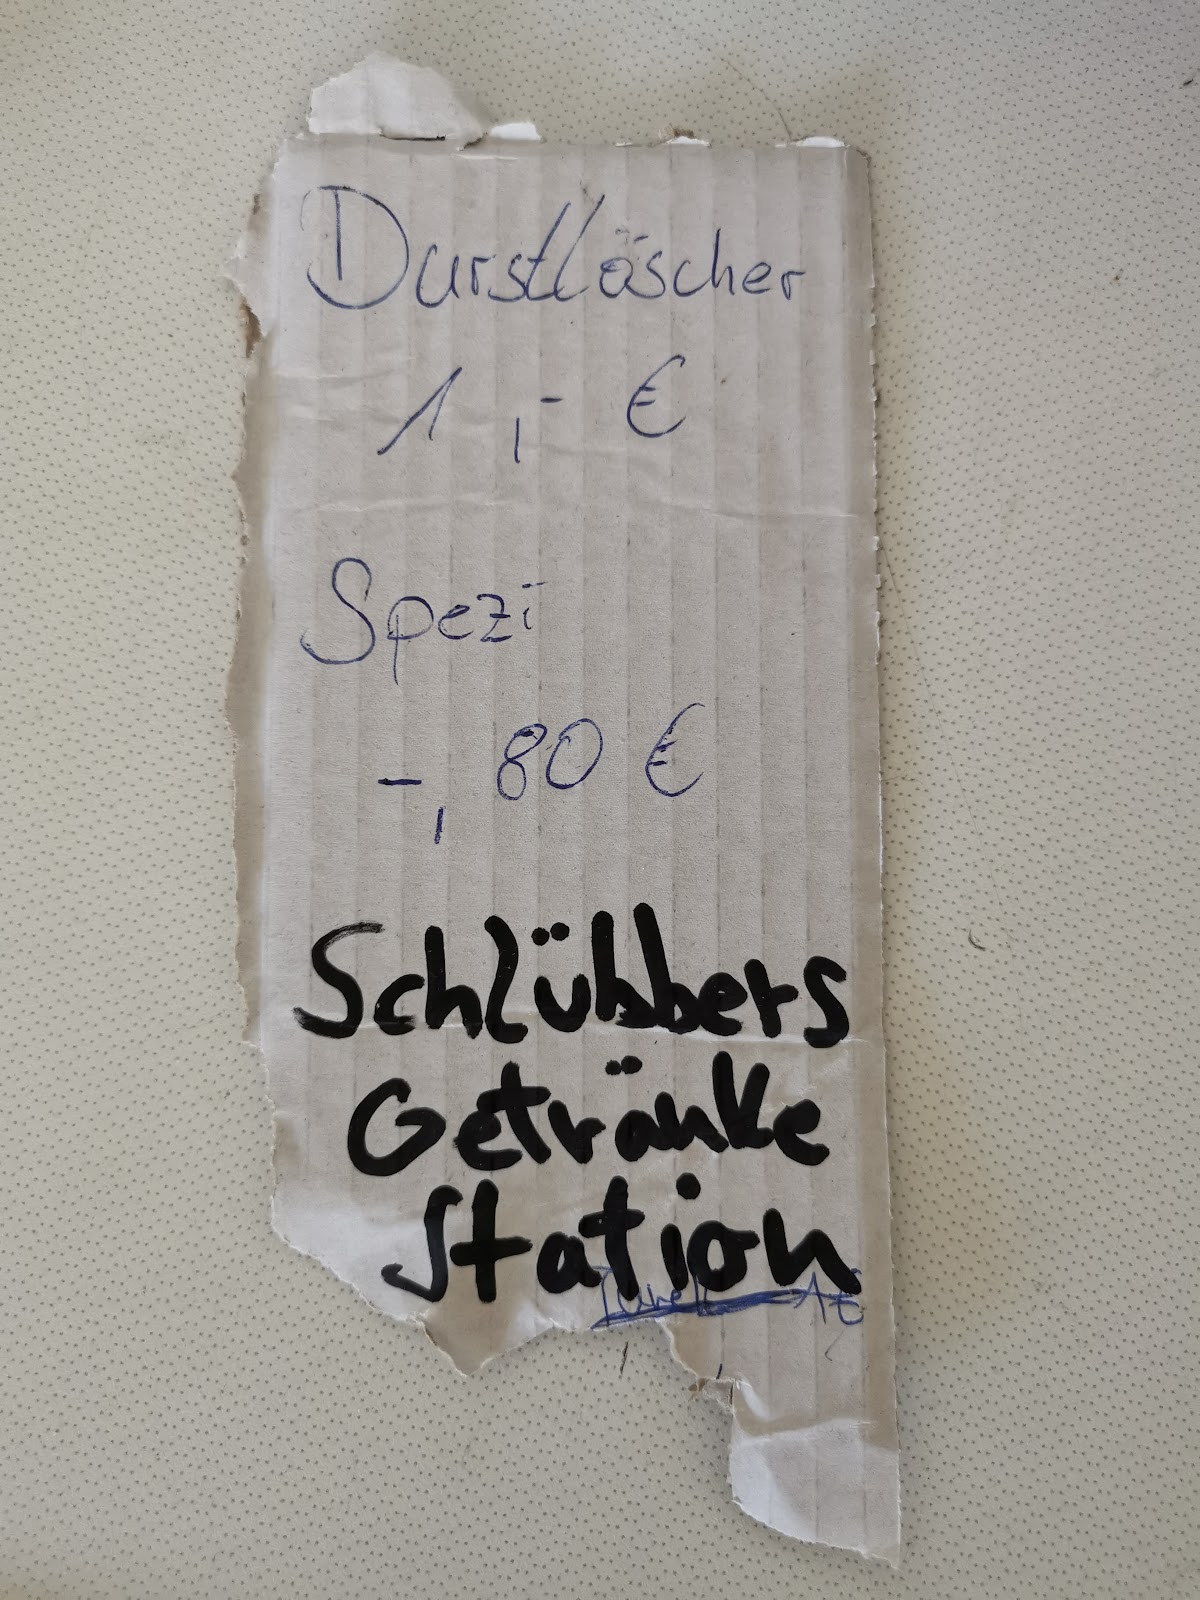 Durstlöscher
1,- €
Spezi
-,80 €
Schlübbers
Getränke
Station
1€